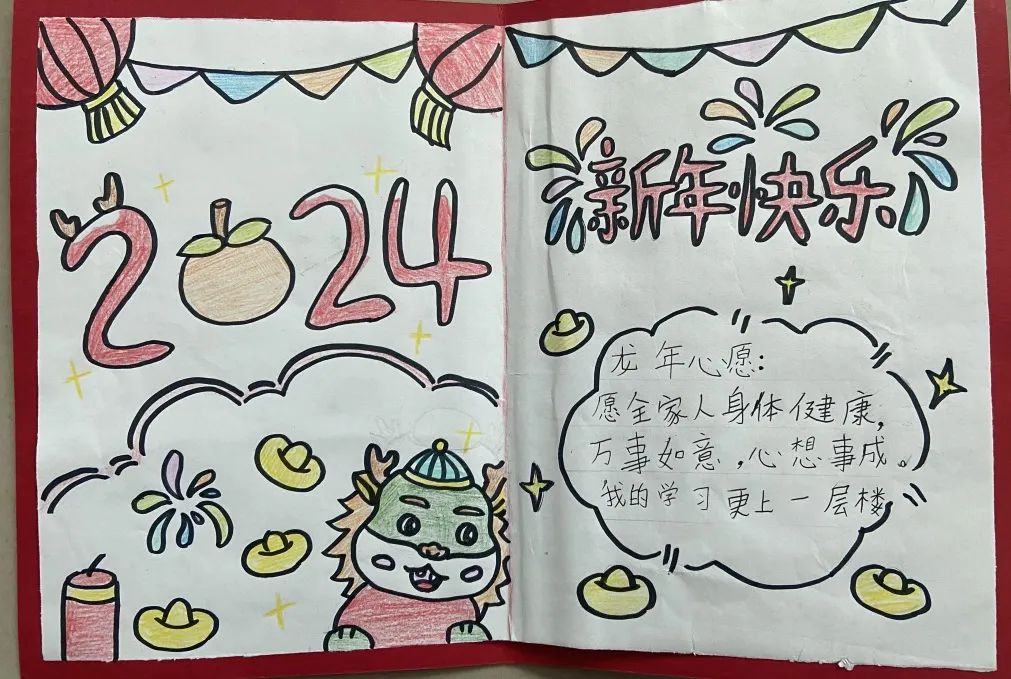 2024
新年快乐
龙年心愿：
愿全家人身体健康，
万事如意，心想事成。
我的学习更上一层楼